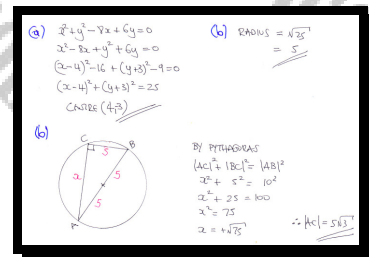 (a) x²+y²-8x+6y=0
x²-8x+y²+6y=0
(x-4)²-16+(y+3)²-9=0
(x-4)²+(y+3)²=25
CENTRE (4,-3)
(b) RADIUS = √25
= 5
(b)
C
5
B
x
5
5
A
BY PYTHAGORAS
|AC|²+|BC|²=|AB|²
x²+ 5² = 10²
x²+ 25 = 100
x²= 75
x = +√75
∴ |AC|=5√3